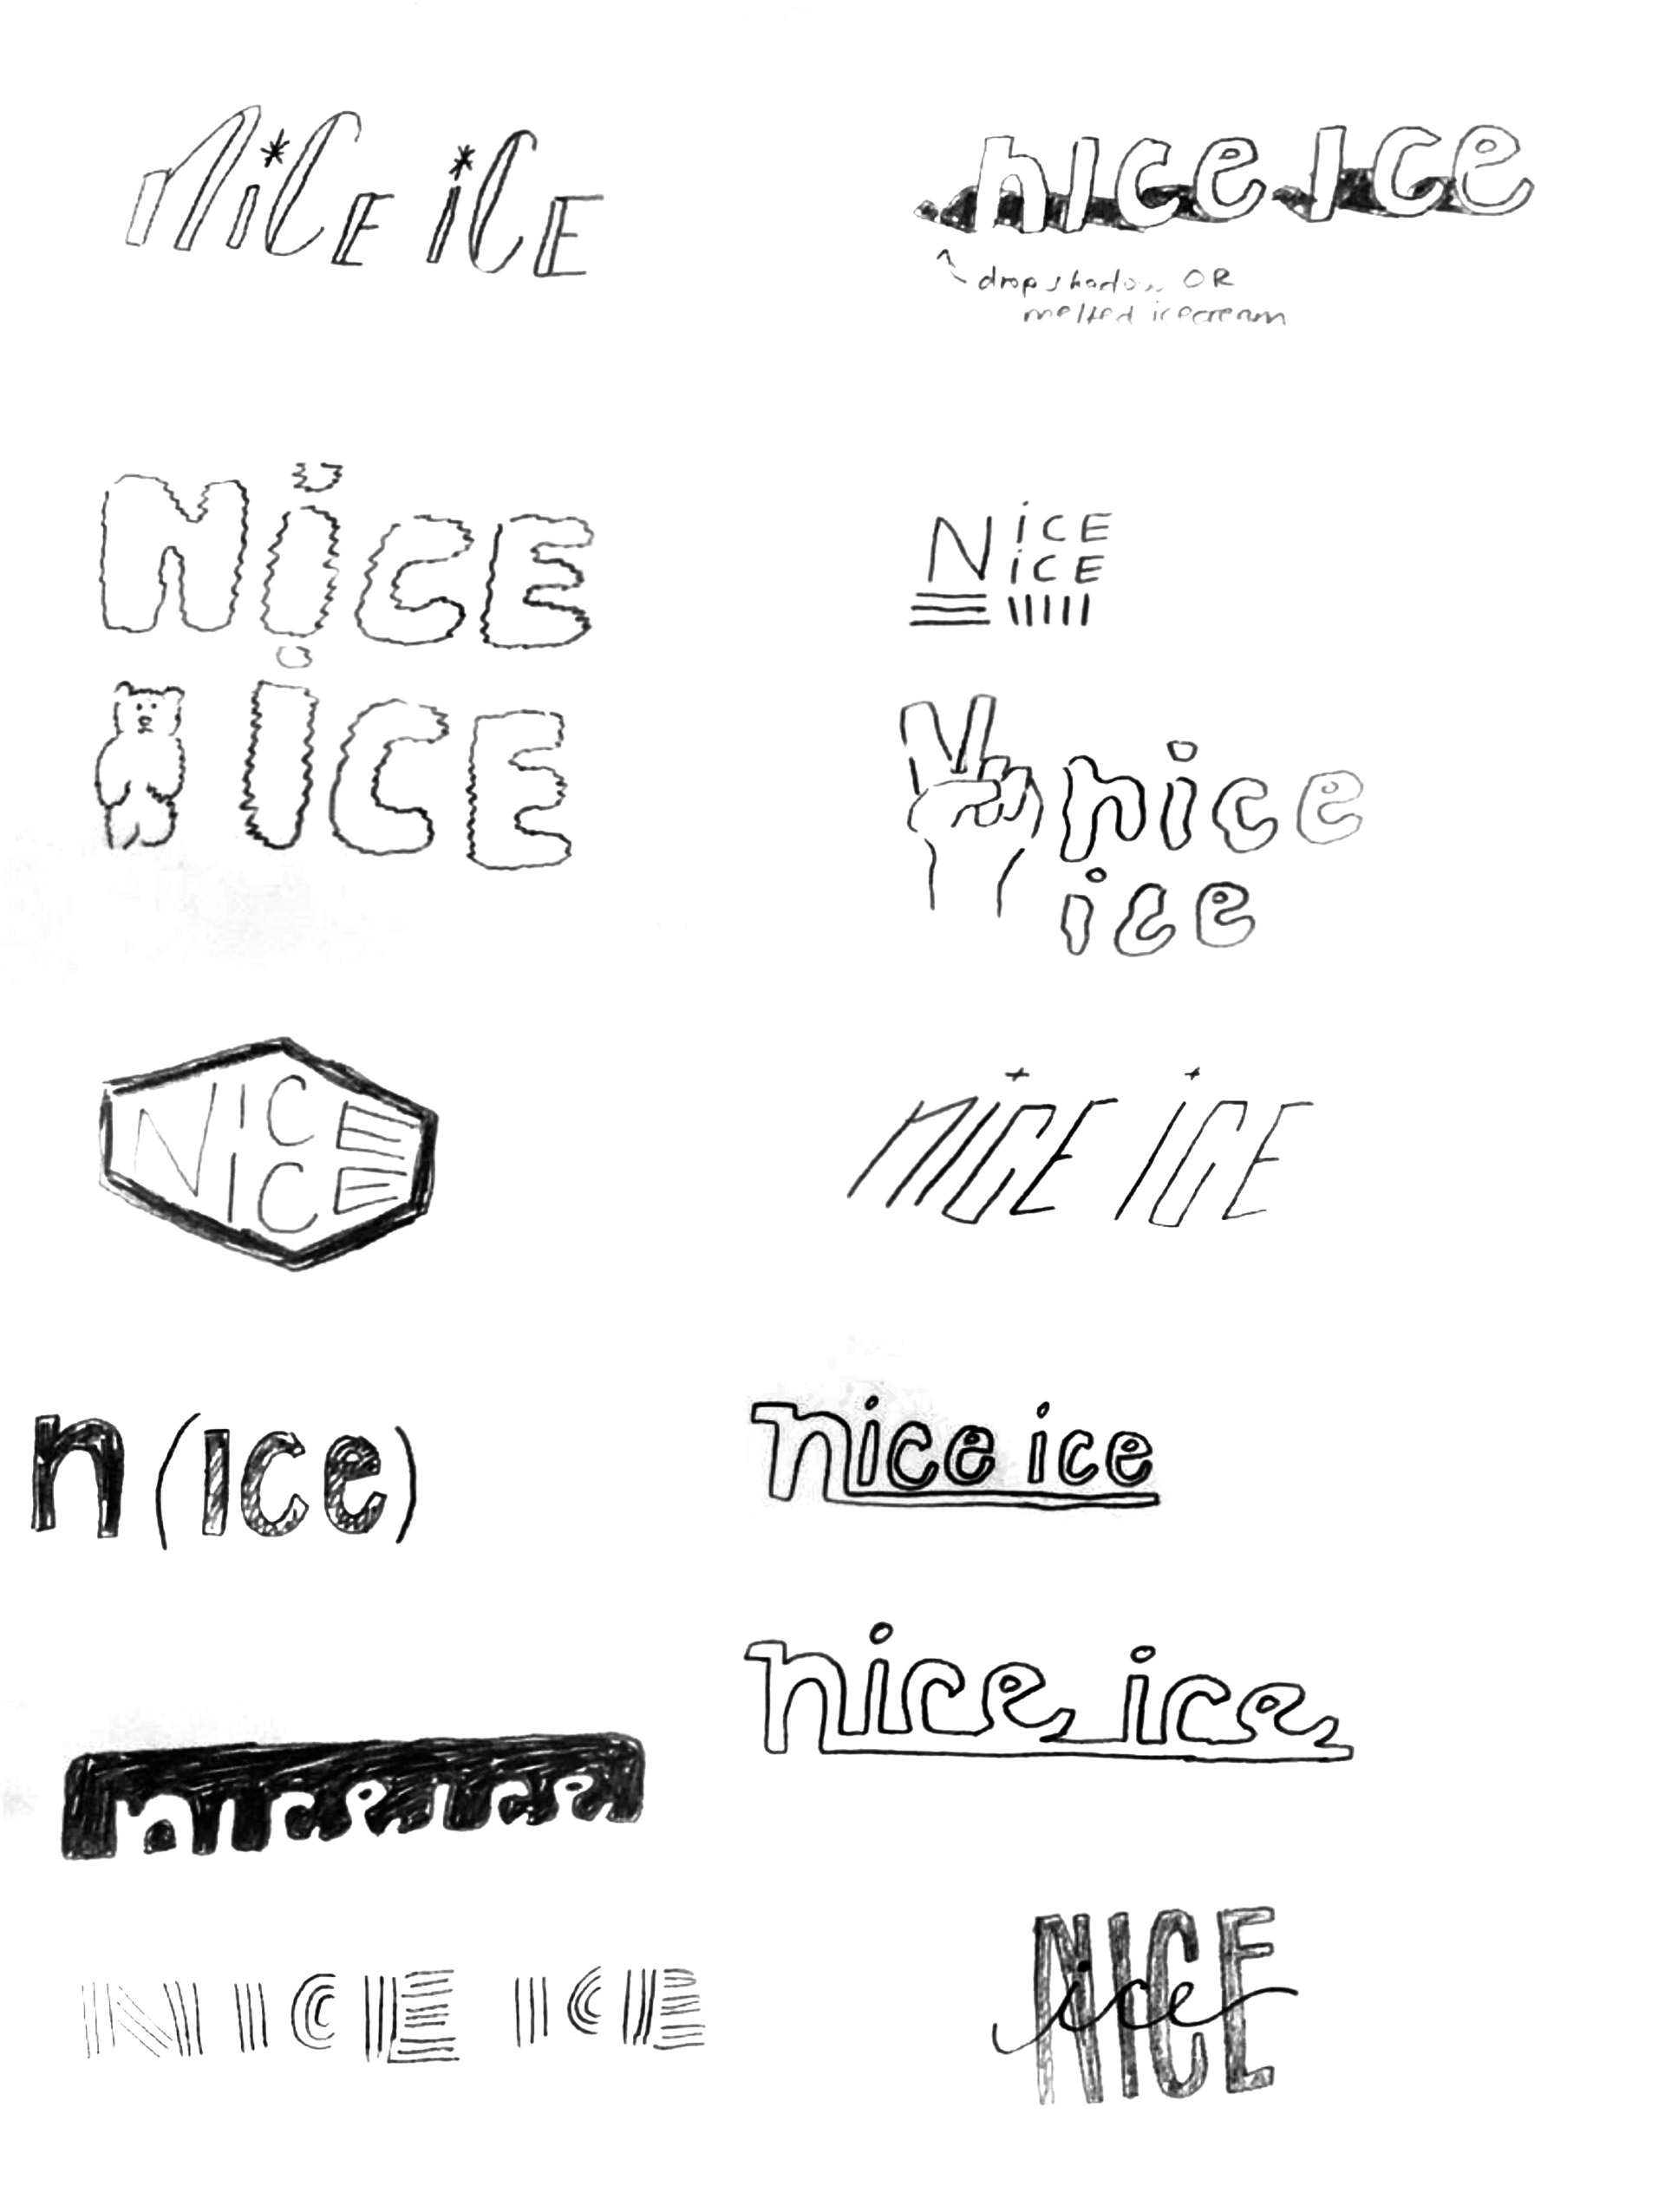 NiCE iCE
nice ice
drop shadow OR
melted icecream
NiCE
iCE
NiCE
iCE
nice
ice
NICE
ICE
NICE ICE
n (ice)
nice ice
nice ice
nice ice
NICE ICE
NICE
ice